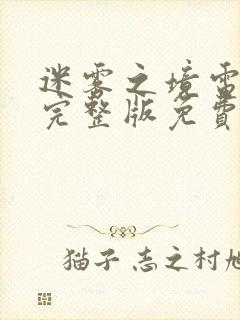 迷雾之境雷
完整版免費
猫子 志之村旭